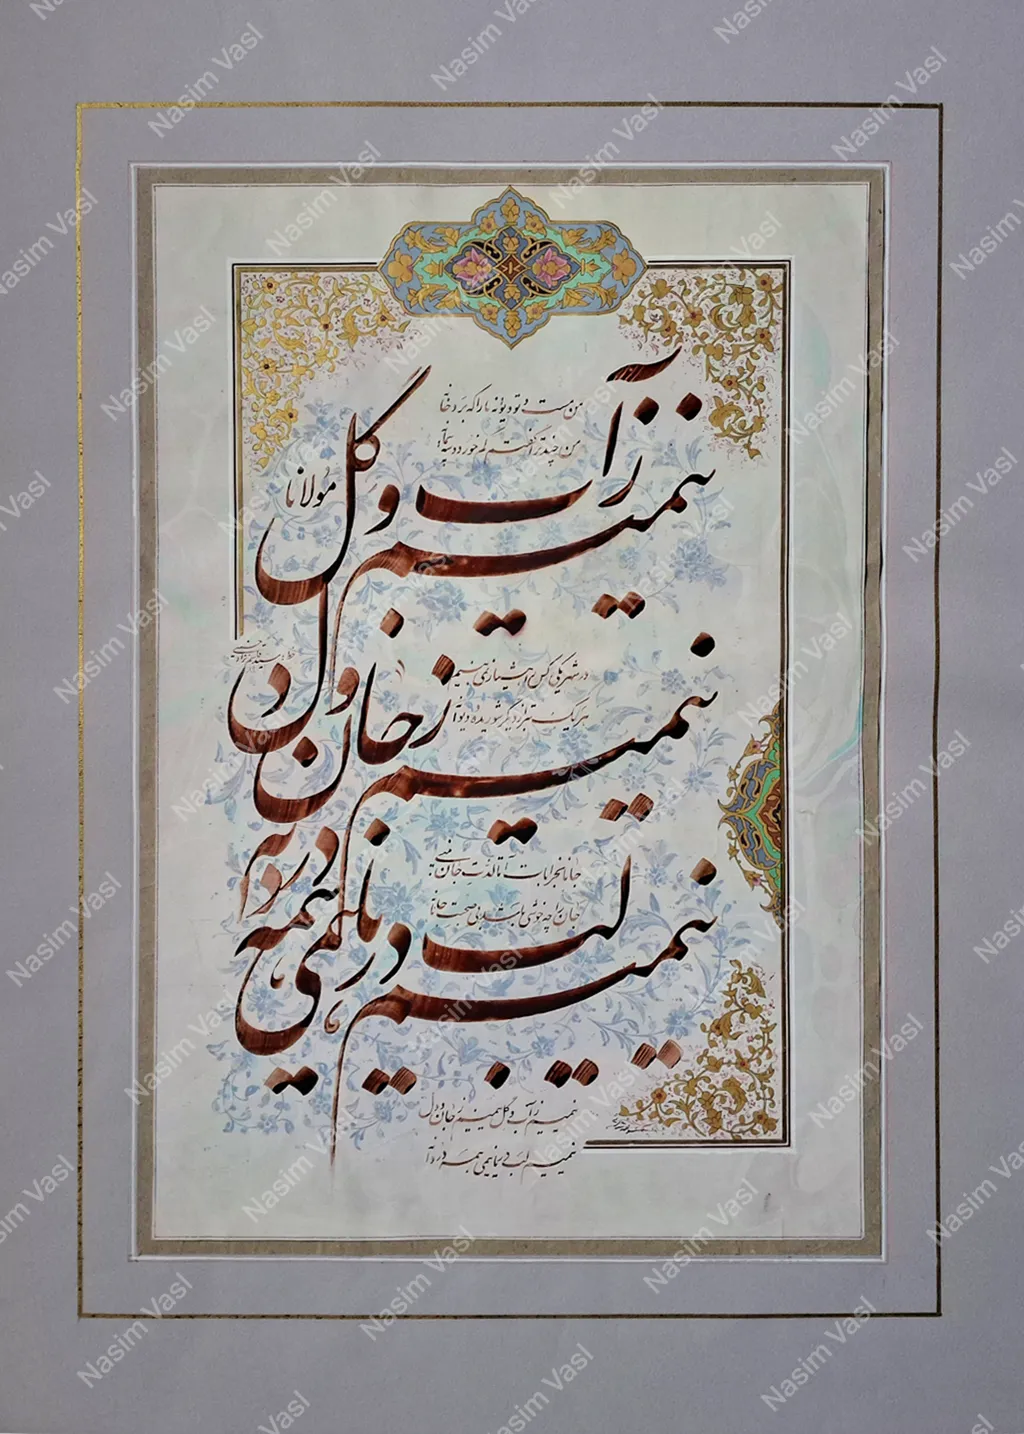 من مست و تو دیوانه ما را که برد خانه
من چند ترا گفتم کم خور دو سه پیمانه
نیمیم ز آب و گل
مولانا
در شهر یکی کس را هشیار نمی بینم
هر یک بتر از دیگر شوریده و دیوانه
نیمیم ز جان و دل
جانا بخرابات آ تا لذت جان بینی
جان را چه خوشی باشد بی صحبت جانانه
نیمیم لب دریا نیمی همه دردانه
نیمیم ز آب و گل نیمیم ز جان و دل
نیمیم لب دریا نیمی همه دردانه
Nasim Vasl